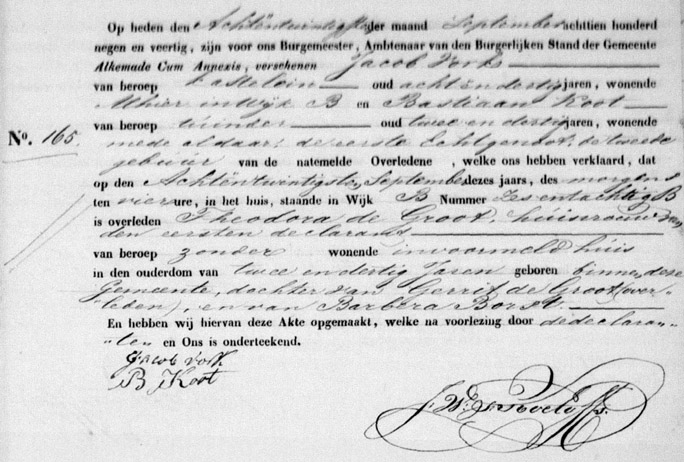 Op heden den Achtentwintigste der maand September achttien honderd
negen en veertig, zijn voor ons Burgemeester, Ambtenaar van den Burgerlijken Stand der Gemeente
Alkemade Cum Annexis, verschenen Jacob
van beroep Kastelein oud achtendertig jaren, wonende
Alhier in wijk B en Bastiaan Koot
van beroep tuinder oud twee en dertig jaren, wonende
No. 165. mede aldaar, de eerste Echtgenoot, de tweede
gebuur van de natemelde Overledene , welke ons hebben verklaard, dat
op den Achtentwintigste September dezes jaars, des morgens
ten vier ure, in het huis, staande in Wijk B Nummer zesentachtig B
is overleden Theodora de Groot, huisvrouw van
den eersten declarant
van beroep zonder wonende in voormeld huis
in den ouderdom van twee en dertig Jaren geboren binnen deze
Gemeente, dochter van Gerrit de Groot (over-
leden), en van Barbera Borst
En hebben wij hiervan deze Akte opgemaakt, welke na voorlezing door de declaran-
ten en Ons is onderteekend.
Jacob
B Koot